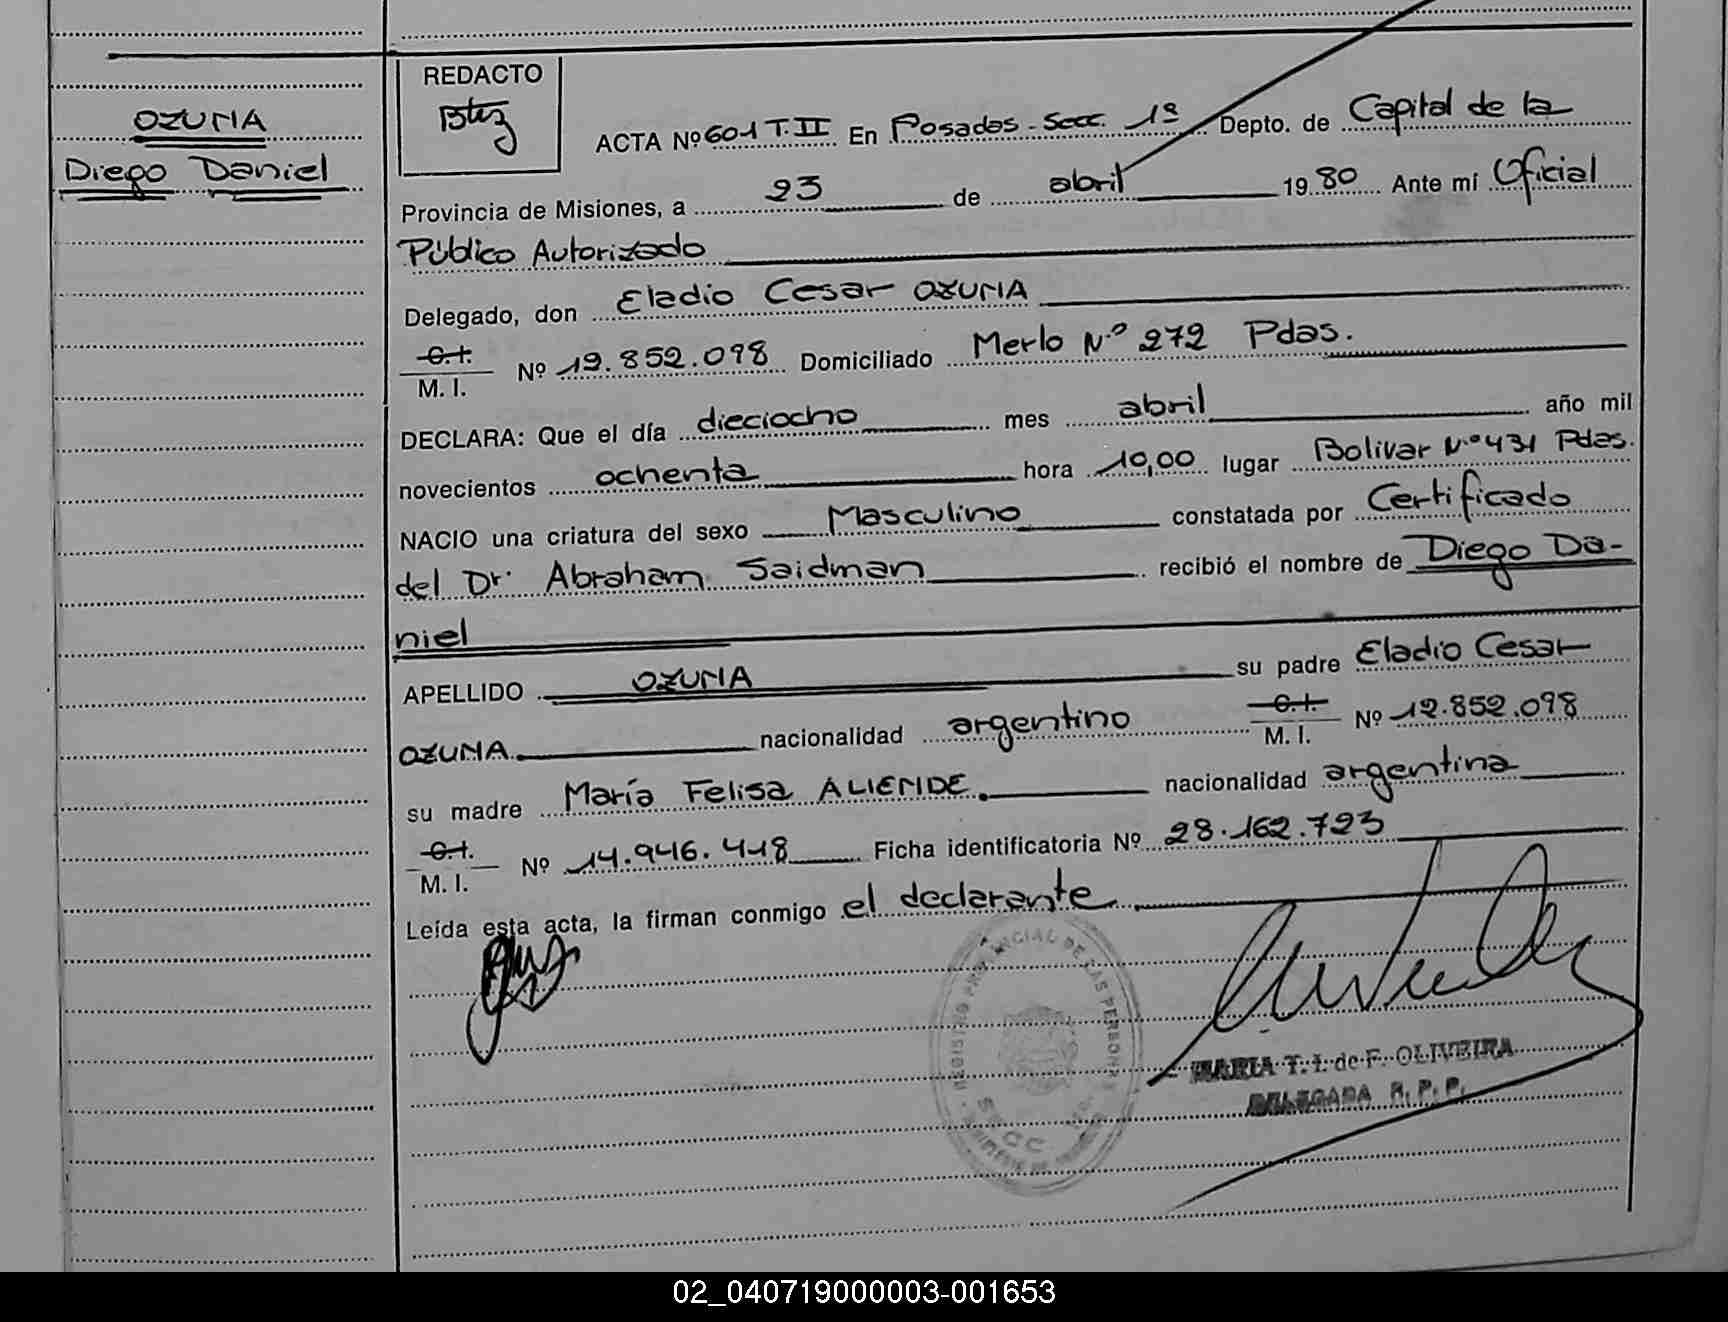 REDACTO
OZUNA
Diego Daniel
ACTA Nº 601 T.II En Posadas - Secc. 1ª Depto. de Capital de la
Provincia de Misiones, a 23 de abril 1980 Ante mí Oficial
Público Autorizado
Delegado, don Eladio Cesar OZUNA
C.I.
M. I. Nº 12.852.098 Domiciliado Merlo Nº 272 Pdas.
DECLARA: Que el día dieciocho mes abril año mil
novecientos ochenta hora 10,00 lugar Bolivar Nº 431 Pdas.
NACIO una criatura del sexo Masculino constatada por Certificado
del Dr. Abraham Saidman recibió el nombre de Diego Da-
niel
APELLIDO OZUNA su padre Eladio Cesar
OZUNA nacionalidad argentino C.I.
M. I. Nº 12.852.098
su madre María Felisa ALIENDE. nacionalidad argentina
C.I.
M. I. Nº 14.946.418 Ficha identificatoria Nº 28.162.723
Leída esta acta, la firman conmigo el declarante.
REGISTRO PROVINCIAL DE LAS PERSONAS
SECC
MARIA T. I. de F. OLIVEIRA
DELEGADA R. P. P.
02_040719000003-001653